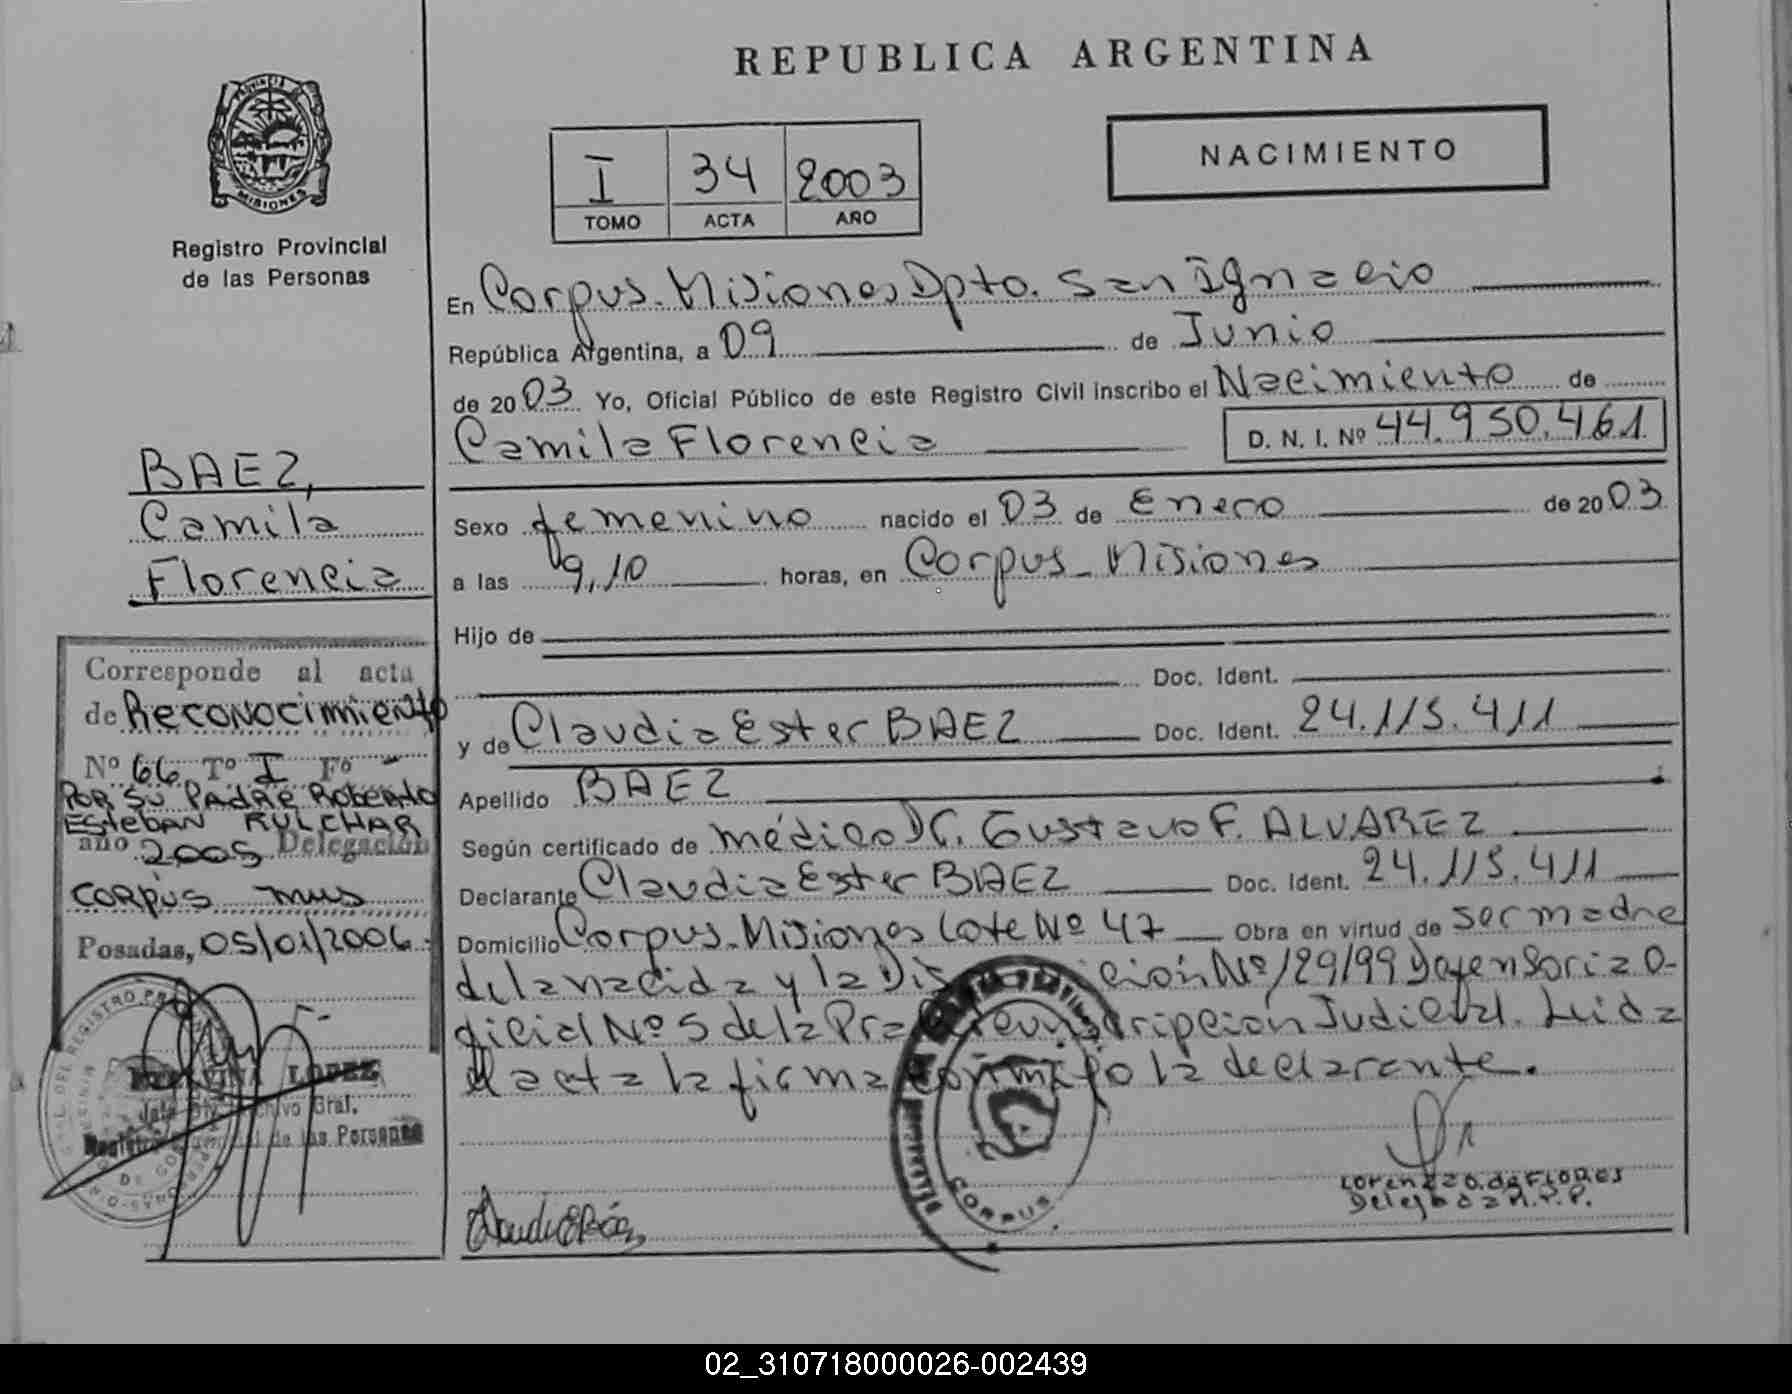 REPUBLICA ARGENTINA
PROVINCIA DE
MISIONES
Registro Provincial
de las Personas
NACIMIENTO
I 34 2003
TOMO ACTA AÑO
En Corpus. Misiones Dpto. San Ignacio
República Argentina, a 09 de Junio
de 2003 Yo, Oficial Público de este Registro Civil inscribo el Nacimiento de
Camila Florencia D. N. I. Nº 44.950.461
Sexo femenino nacido el 03 de Enero de 2003
a las 9,10 horas, en Corpus - Misiones
Hijo de
Doc. Ident.
y de Claudia Ester BAEZ Doc. Ident. 24.115.411
Apellido BAEZ
Según certificado de médico Dr. Gustavo F. ALVAREZ
Declarante Claudia Ester BAEZ Doc. Ident. 24.115.411
Domicilio Corpus - Misiones Lote Nº 47 Obra en virtud de ser madre
de la nacida y la Nº 129/99 Defensoria O-
ficial Nº 5 de la Judicial. Leida
el acta la firma conmigo la declarante.
CORPUS
Delegada R.P.P.
BAEZ,
Camila
Florencia
Corresponde al acta
de Reconocimiento
Nº 66 Tº I Fº -
POR SU PADRE Roberto
Esteban KULCHAR
año 2005 Delegación
CORPUS mnes
Posadas, 05/01/2006
LOPEZ
Archivo Gral.
de las Personas
02_310718000026-002439